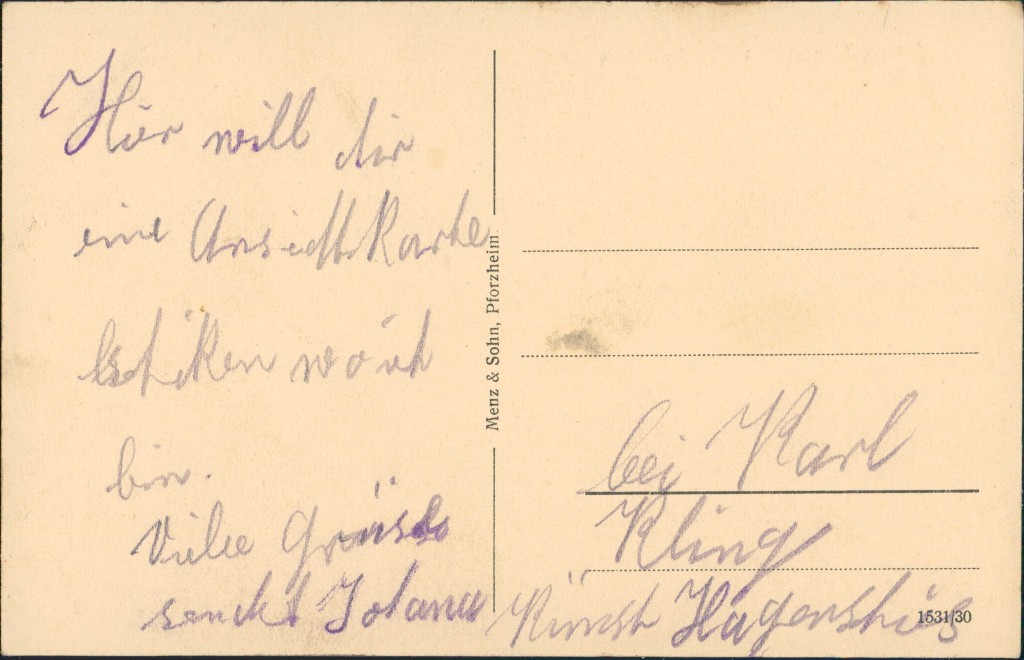 Hür will dir
eine Ansicttkarte
schiken wo ich
bin.
Viele Grüsse
senckt Johana
Menz & Sohn, Pforzheim
bei Karl
Kling
1531/30